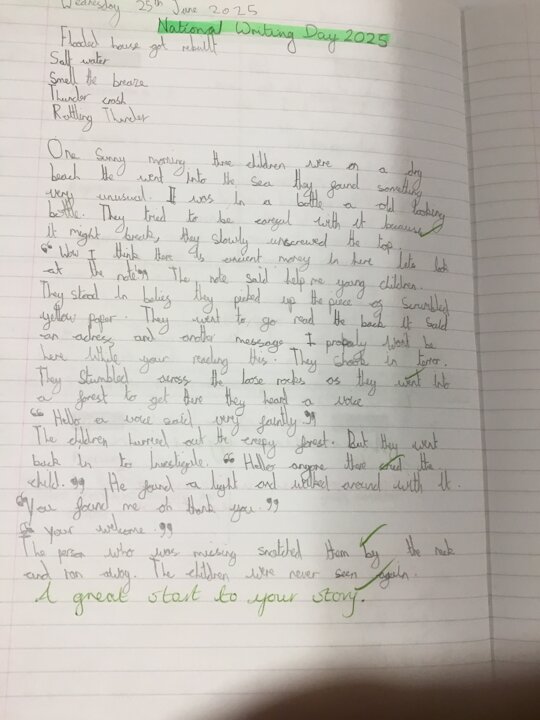 Wednesday 25th June 2025
National Writing Day 2025
Flooded house got rebuilt
Salt water
Smell the breaze
Thunder crash
Rottling Thunder
One sunny morning three children were on a dry
beach the went into the sea they found something
very unusual. It was in a bottle a old looking
bottle. They tried to be cargul with it because
it might break, they slowly unscrewed the top.
"Wow I think there is ancient money in here lets look
at the note!" The note said help me young children.
They stood in belief they picked up the piece of scrumbled
yellow paper. They went to go read the back it said
an adress and another message I propaly wont be
here while your reading this. They shook in terror.
They stumbled across the loose rocks as they went into
a forest to get there they heard a voice
"Hello a voice said very faintly."
The children hurried out the creepy forest. But they went
back in to investigate. "Hello anyone there said the
child." He found a light and walked around with it.
"You found me oh thank you."
"Your welcome."
The person who was missing snatched them by the neck
and ran away. The children were never seen again.
A great start to your story.